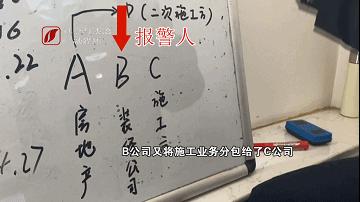 D(二次施工方)
报警人
16
.22
A B C
房地产
装修公司
施工方
4.27
B公司又将施工业务分包给了C公司